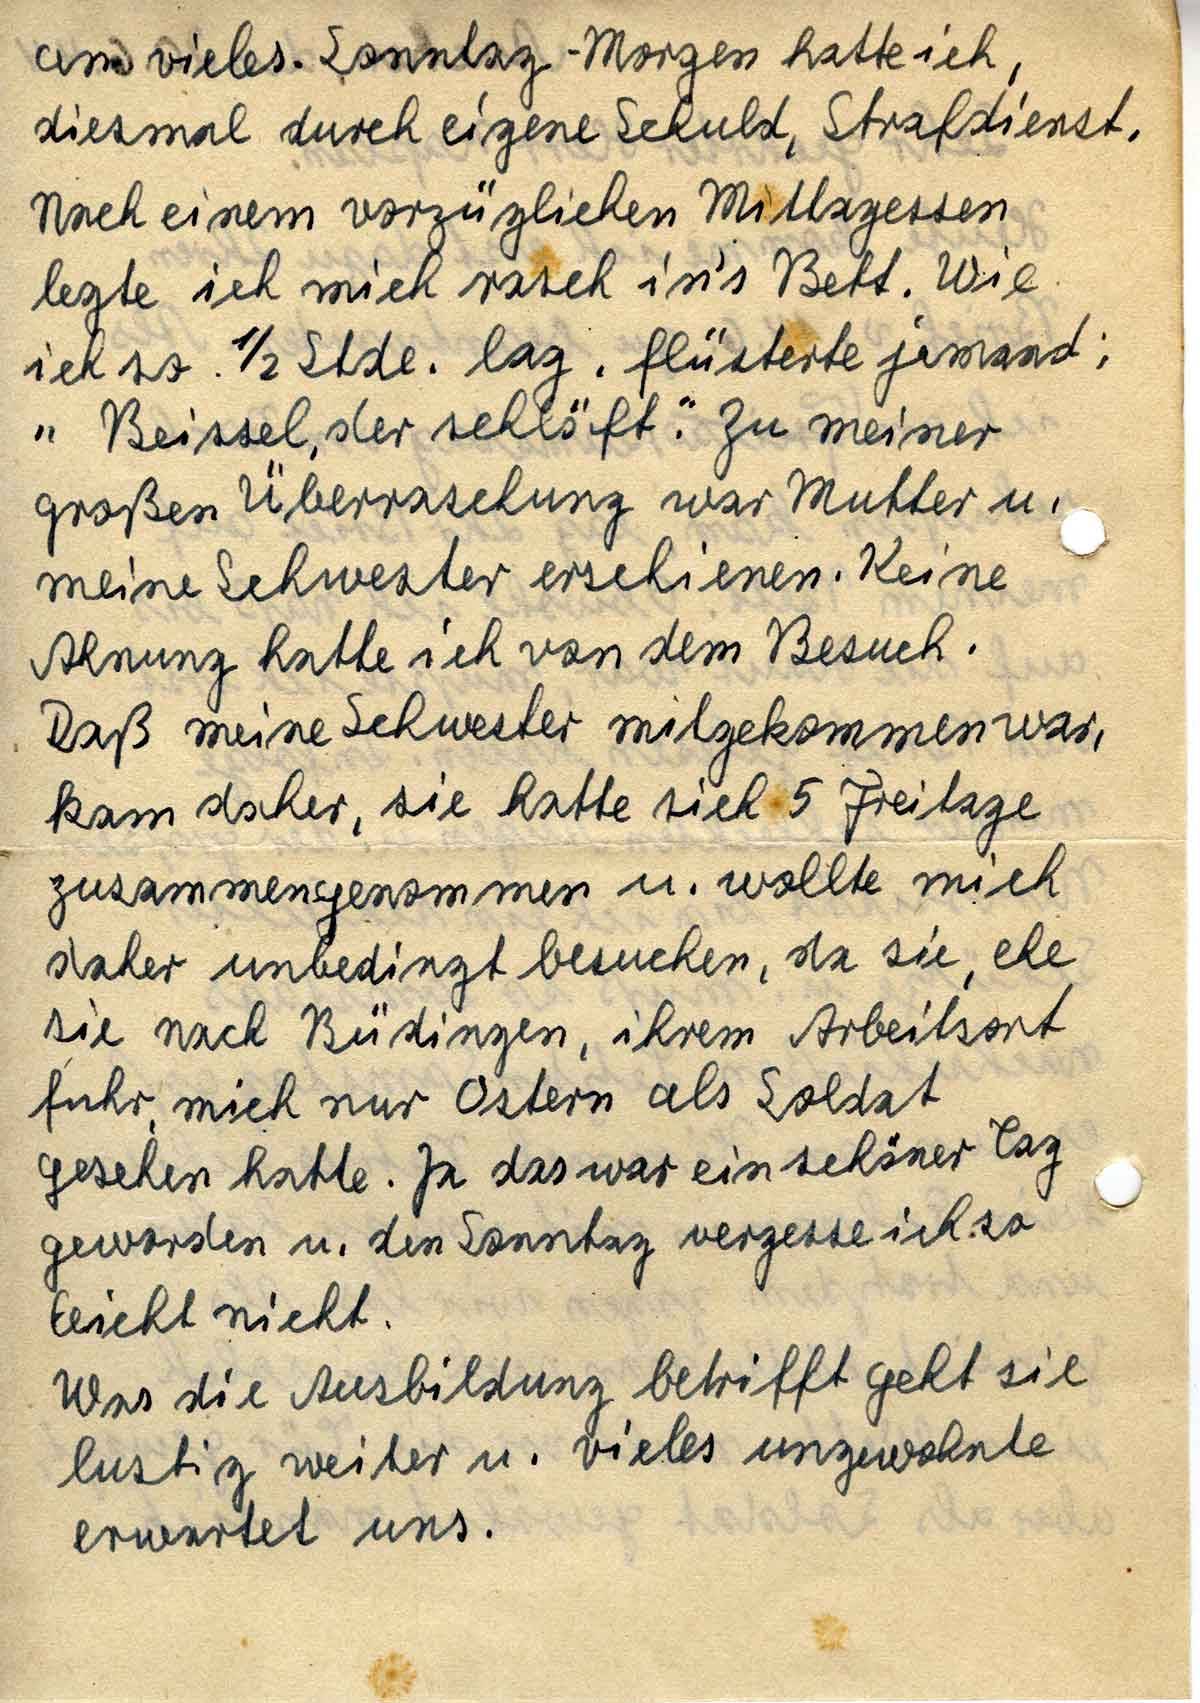 um vieles. Sonntag-Morgen hatte ich,
diesmal durch eigene Schuld, Strafdienst.
Nach einem vorzüglichen Mittagessen
legte ich mich rasch in's Bett. Wie
ich so 1/2 Stde. lag, flüsterte jemand:
"Beissel, der schlöft". Zu meiner
großen Überraschung war Mutter u.
meine Schwester erschienen. Keine
Ahnung hatte ich von dem Besuch.
Daß meine Schwester mitgekommen war,
kam daher, sie hatte sich 5 Freitage
zusammengenommen u. wollte mich
daher unbedingt besuchen, da sie, ehe
sie nach Büdingen, ihrem Arbeitsort
fuhr, mich nur Ostern als Soldat
gesehen hatte. Ja das war ein schöner Tag
geworden u. den Sonntag vergesse ich so
leicht nicht.
Was die Ausbildung betrifft geht sie
lustig weiter u. vieles ungewohnte
erwartet uns.